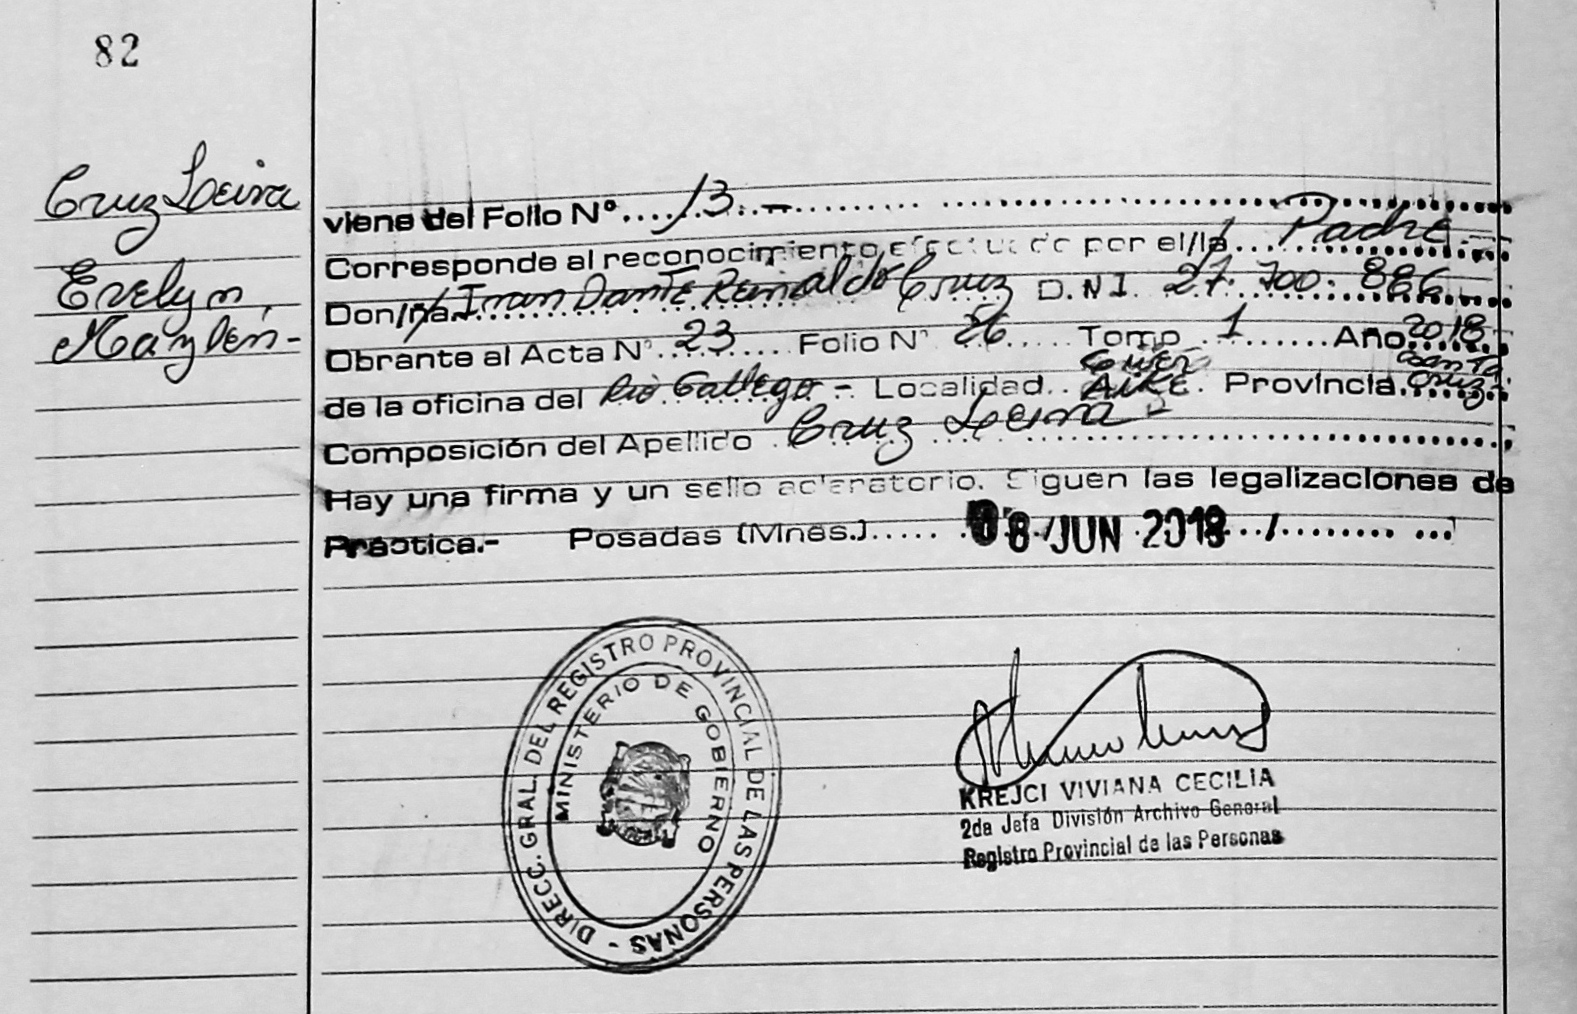 82
Cruz
Evelyn
viene del Folio Nº.....13.-
Corresponde al reconocimiento efectuado por el/la... Padre.-
Don/ña... Dante Reinaldo Cruz D.N.I. 27.700.886
Obrante al Acta Nº...23... Folio Nº 26 ... Tomo 1 ... Año 2018
de la oficina del Rio Gallego - Localidad.. Guer Aike. Provincia. Santa Cruz
Composición del Apellido Cruz
Hay una firma y un sello aclaratorio. Siguen las legalizaciones de
Práctica.- Posadas (Mnes.)..... 08 JUN 2018
DIRECC. GRAL. DEL REGISTRO PROVINCIAL DE LAS PERSONAS -
MINISTERIO DE GOBIERNO
KREJCI VIVIANA CECILIA
2da Jefa División Archivo General
Registro Provincial de las Personas